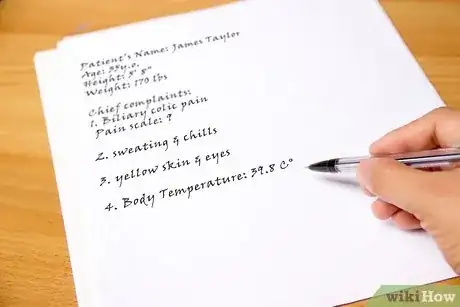 Patient's Name: James Taylor
Age: 55y.o.
Height: 5' 8"
Weight: 170 lbs
Chief complaints:
1. Biliary colic pain
Pain scale: 9
2. sweating & chills
3. yellow skin & eyes
4. Body Temperature: 39.8 C°
wikiHow